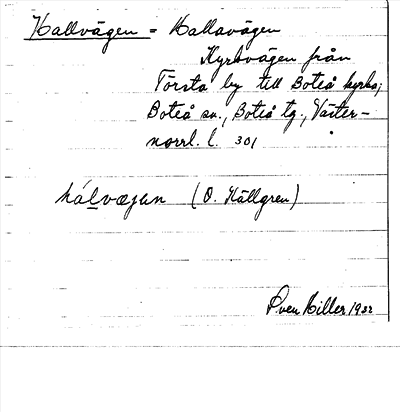 Hallvägen = Hallavägen
Kyrkvägen från
Törsta by till Boteå kyrka;
Boteå sn., Boteå tg., Väster-
norrl. l. 301
hálvægan (O. Källgren)
Sven Hiller 1932